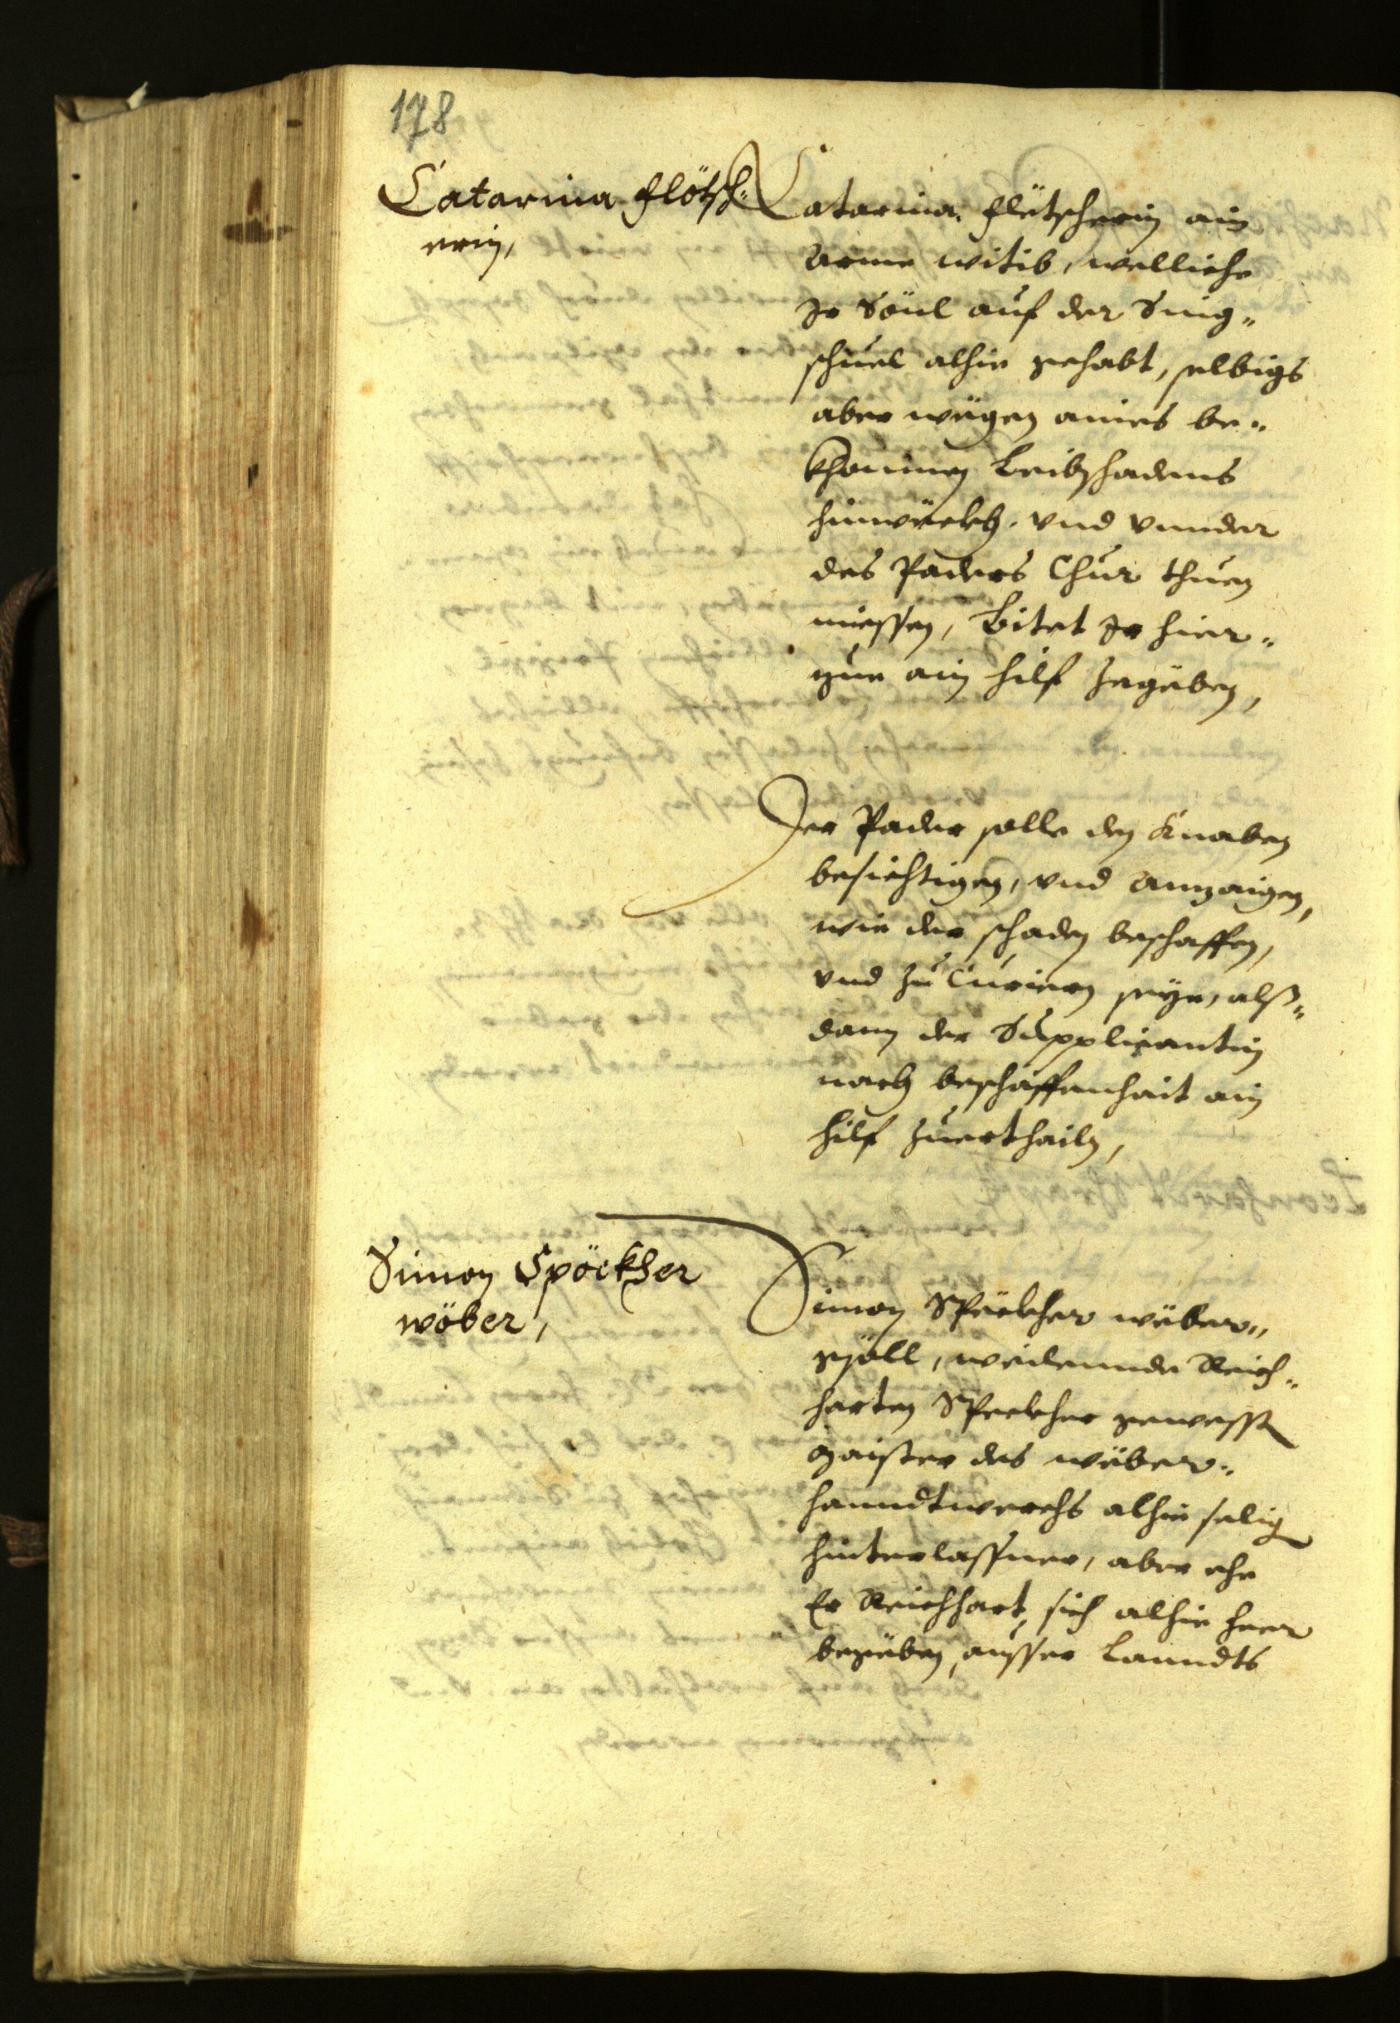 178
Catarina Flötsch-
erin,
Catarina Flëtscherin ain
arme witib, welliche
Ir Söül auf der Sing-
schuel alhie gehabt, selbigs
aber wëgen aines be-
khommen Leibschadens
hinwëckh, vnd vnnder
des Paders Chur thuen
miessen, bitet Ir hier-
zue ain hilf zugëben,
Der Pader solle den Knaben
besichtigen, vnd anzaigen,
wie der schaden beschaffen,
vnd zu Curiern seye, alß-
dann der Supplicantin
nach beschaffenhait ain
hilf zuerthailn,
Simon Spöckher
wöber,
Simon Spëckher wëber-
gsöll, weilennda Reich-
harten Speckher gewesster
Maister des wëber-
hanndtwerchs alhie selig
hinterlassner, aber ehe
Er Reichhart, sich alhie heer
begëben, ausser Lanndts